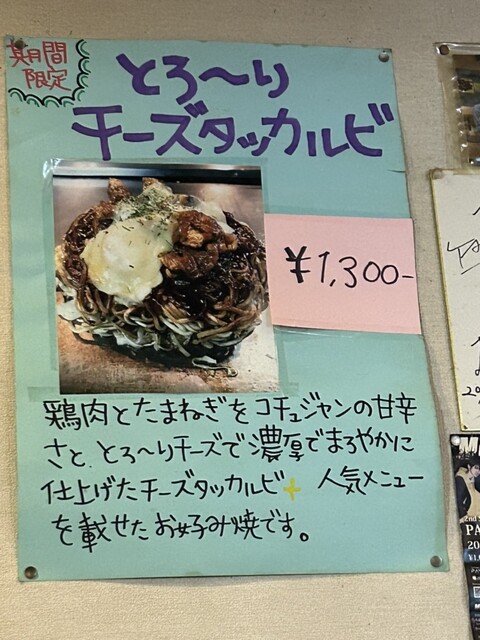 期間
限定
とろ～り
チーズタッカルビ
¥1,300-
鶏肉とたまねぎをコチュジャンの甘辛
さと、とろ～りチーズで濃厚でまろやかに
仕上げたチーズタッカルビ 人気メニュー
を載せたお好み焼です。
2nd
PA
20